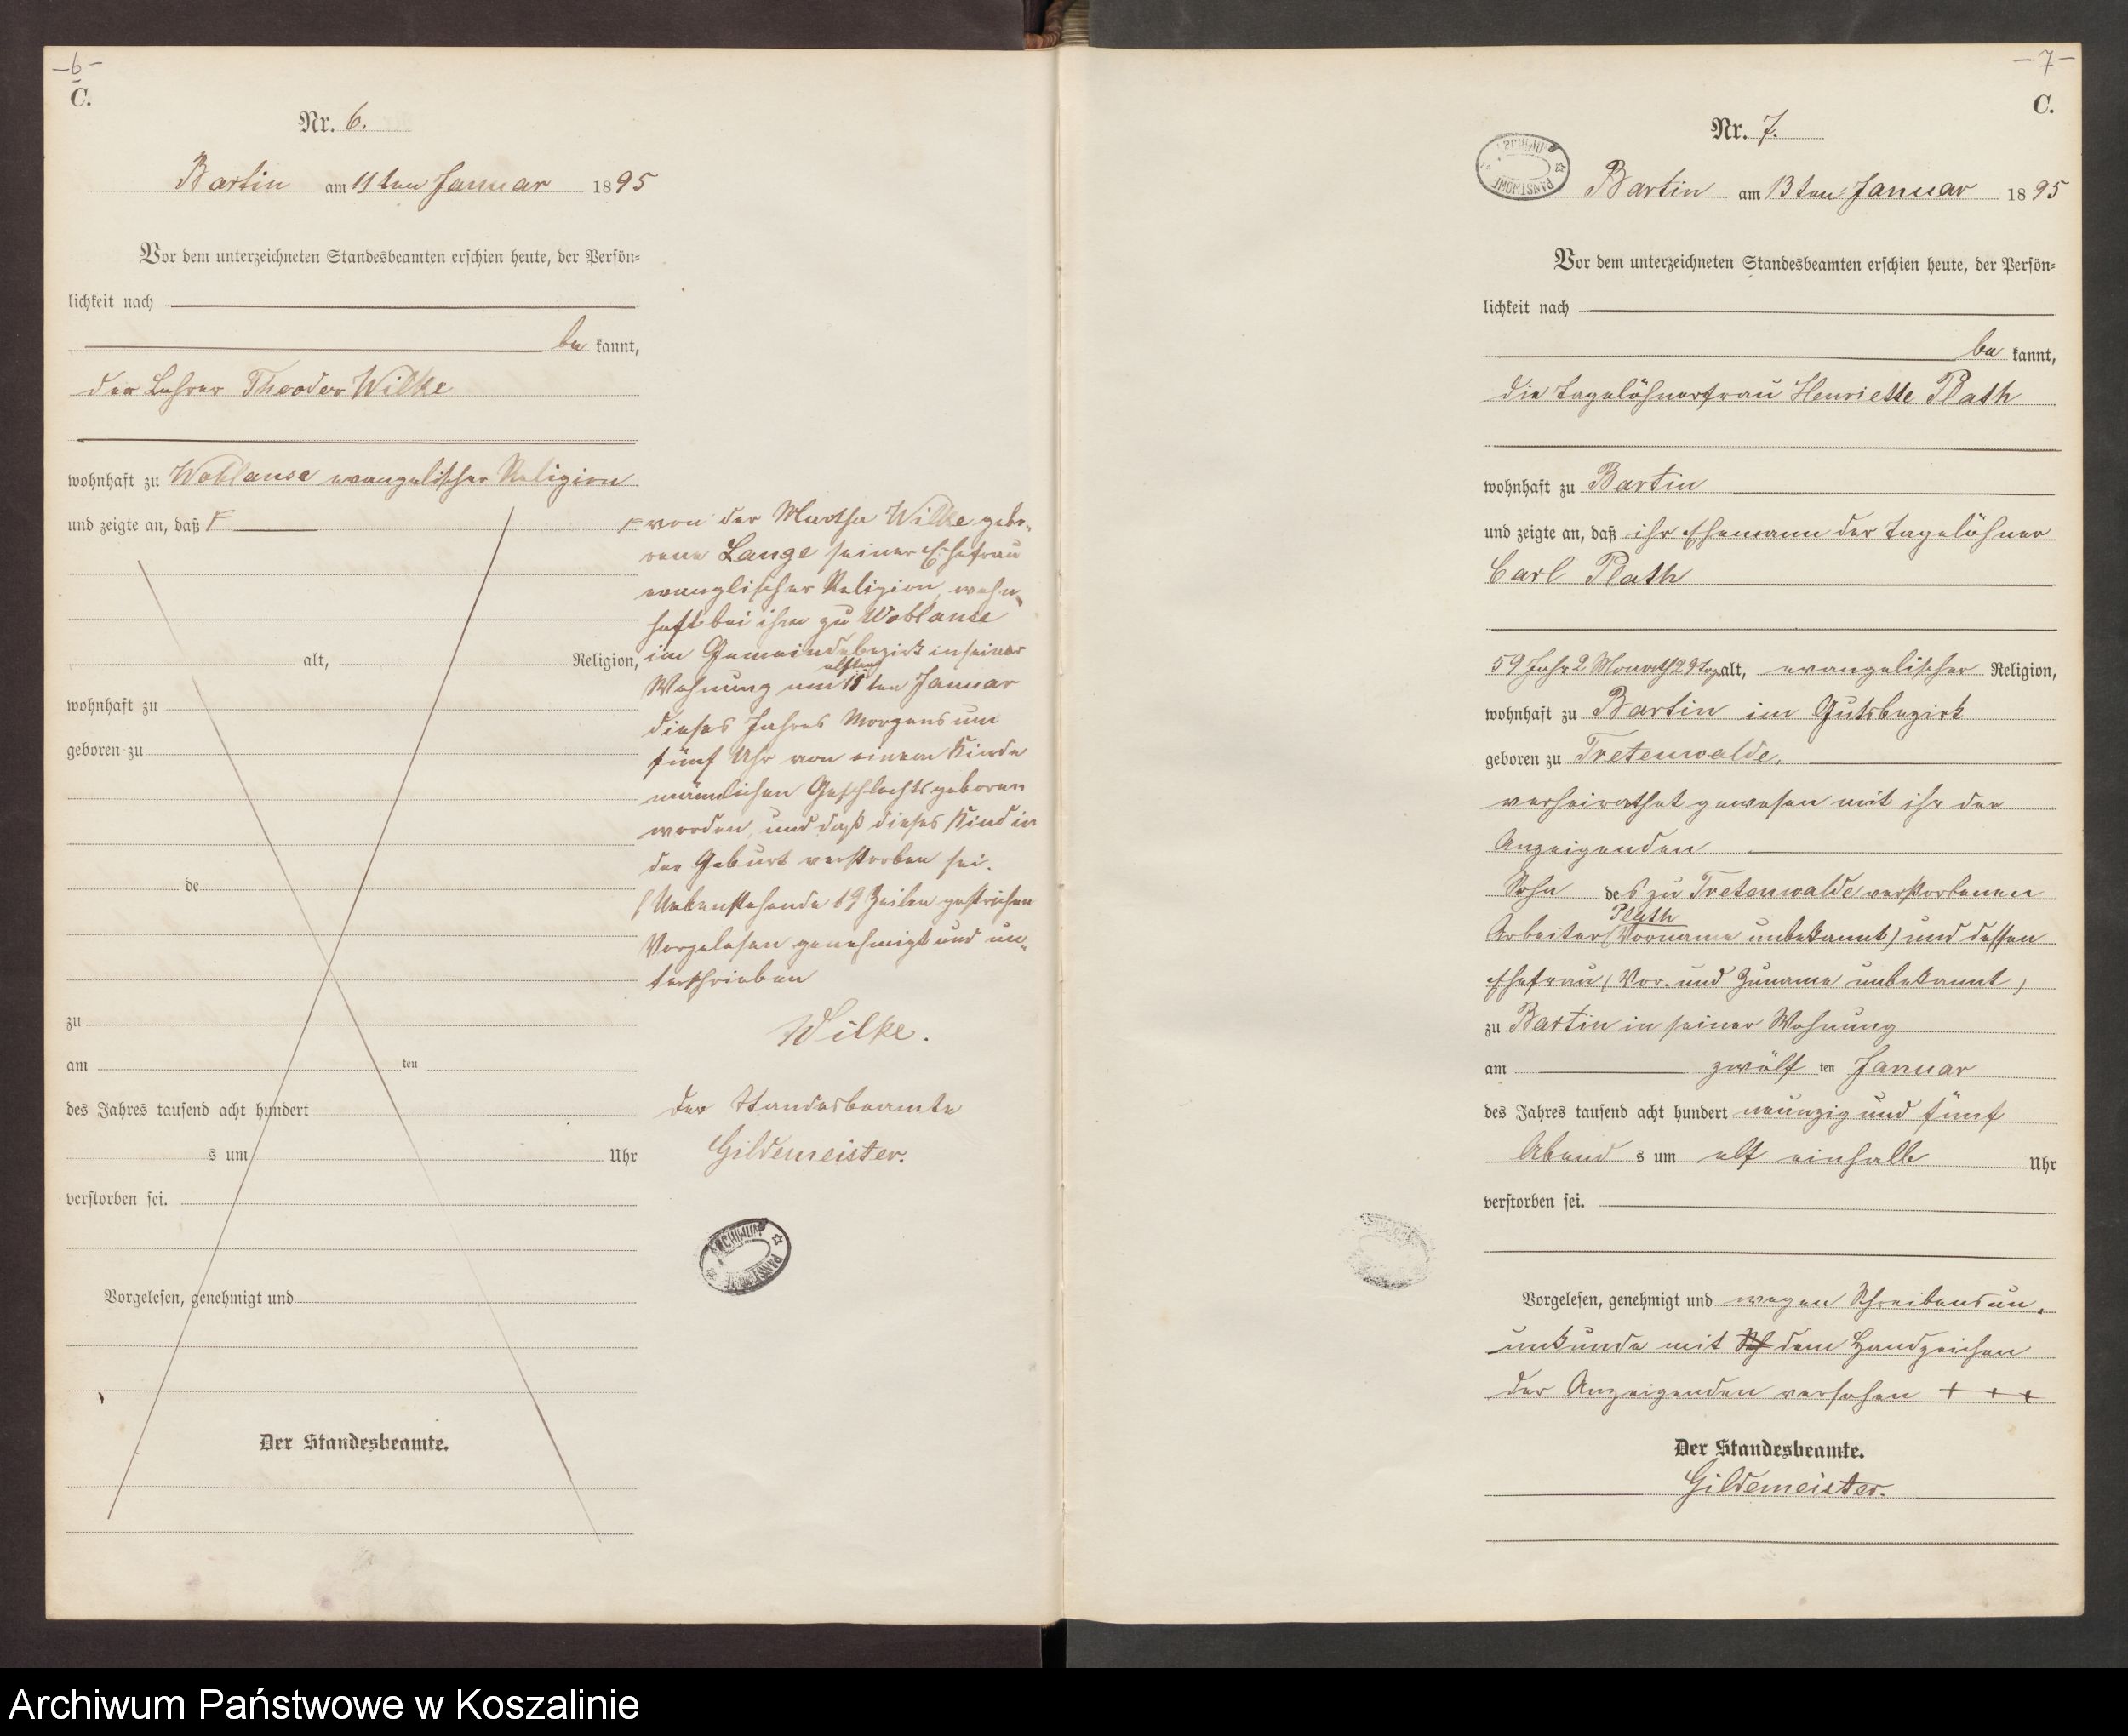 -6-
C.
Nr. 6.
Bartin am 11ten Januar 1895
Vor dem unterzeichneten Standesbeamten erschien heute, der Persön-
lichkeit nach
be kannt,
der Lehrer Theodor Wilke
wohnhaft zu Woblanse evangelischer Religion
und zeigte an, daß F
alt, Religion,
wohnhaft zu
geboren zu
de
zu
am ten
des Jahres tausend acht hundert
s um Uhr
verstorben sei.
Vorgelesen, genehmigt und
Der Standesbeamte.
F von der Martha Wilke gebo-
rene Lange seiner Ehefrau
evanglischer Religion, wohn-
haft bei ihm zu Woblanse
im Gemeindebezirk in seiner
elften
Wohnung am 11ten Januar
dieses Jahres Morgens um
fünf Uhr von einem Kinde
männlichen Geschlechts geboren
worden, und daß dieses Kind in
der Geburt verstorben sei.
(Nebenstehende 19 Zeilen gestrichen
Vorgelesen genehmigt und un-
terschrieben
Wilke.
Der Standesbeamte
Gildemeister.
ARCHIWUM PAŃSTWOWE
-7-
C.
Nr. 7.
ARCHIWUM PAŃSTWOWE
Bartin am 13ten Januar 1895
Vor dem unterzeichneten Standesbeamten erschien heute, der Persön-
lichkeit nach
be kannt,
die Tagelöhnerfrau Henriette Plath
wohnhaft zu Bartin
und zeigte an, daß ihr Ehemann der Tagelöhner
Carl Plath
59 Jahr 2 Monath 29 Tag alt, evangelischer Religion,
wohnhaft zu Bartin im Gutsbezirk
geboren zu Tretenwalde,
verheirathet gewesen mit ihr der
Anzeigenden
Sohn des zu Tretenwalde verstorbenen
Plath
Arbeiter (Vorname unbekannt) und dessen
Ehefrau (Vor- und Zuname unbekannt)
zu Bartin in seiner Wohnung
am zwölf ten Januar
des Jahres tausend acht hundert neunzig und fünf
Abend s um elf einhalb Uhr
verstorben sei.
Vorgelesen, genehmigt und wegen Schreibensun-
unkunde mit dem Handzeichen
der Anzeigenden versehen + + +
Der Standesbeamte.
Gildemeister.
Archiwum Państwowe w Koszalinie